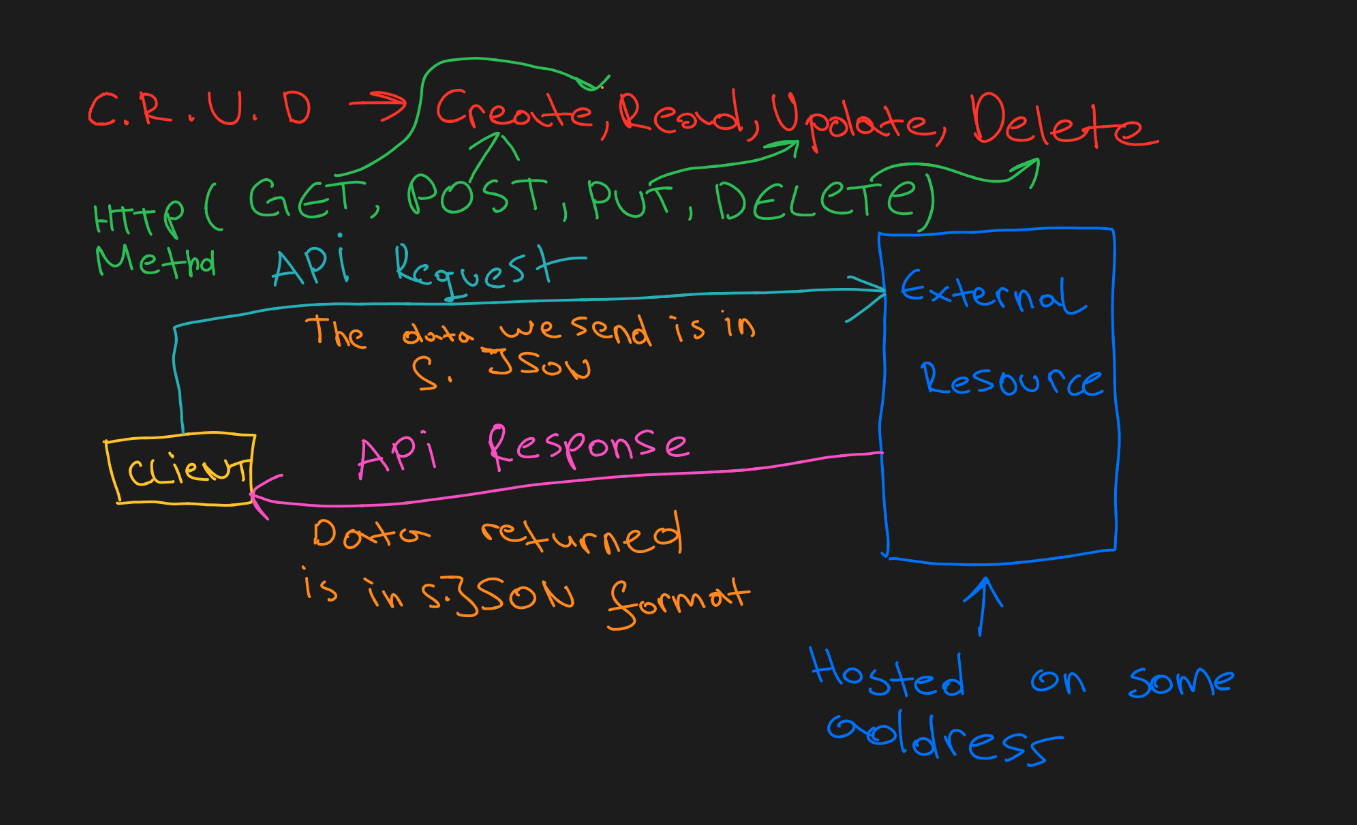 C.R.U.D → Create, Read, Update, Delete
HTTP ( GET, POST, PUT, DELETE)
Methd
API Request
The data we send is in
S. JSON
External
Resource
CLIENT
API Response
Data returned
is in S.JSON format
Hosted on some
address